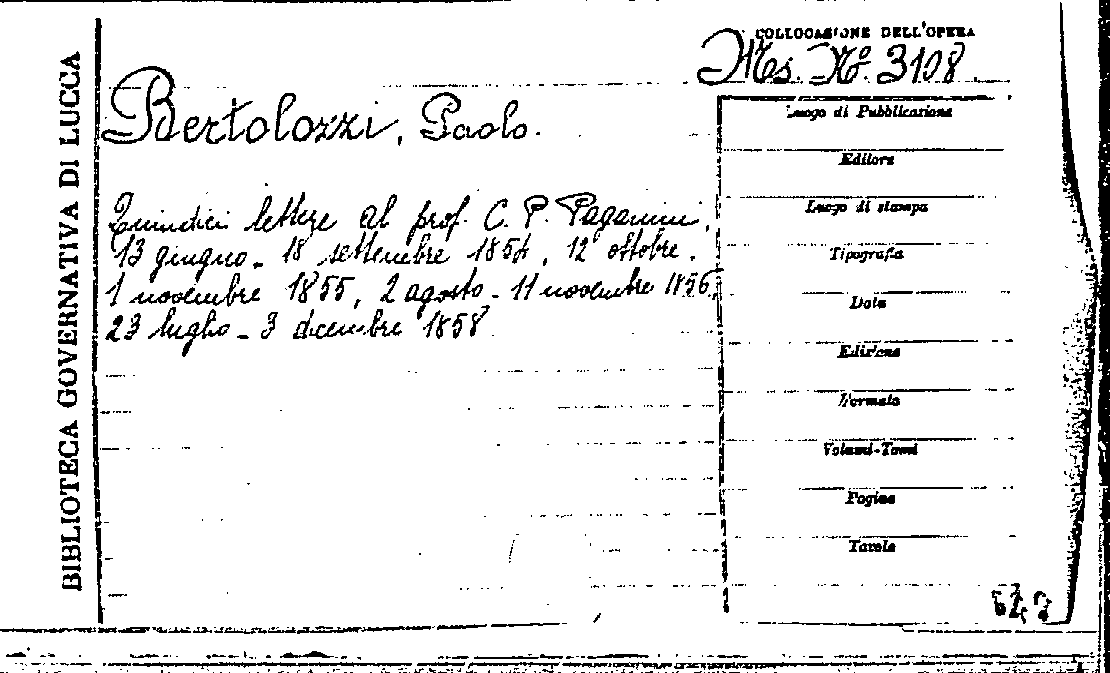 BIBLIOTECA GOVERNATIVA DI LUCCA
COLLOCASIONE DELL'OPERA
Ms. No. 3108
Bertolozzi, Paolo.
Quindici lettere al prof. C. P. Paganini,
13 giugno - 18 settembre 1854, 12 ottobre -
1 novembre 1855, 2 agosto - 11 novembre 1856,
23 luglio - 3 dicembre 1858
Luogo di Pubblicazione
Editore
Luogo di stampa
Tipografia
Data
Edizione
Formato
Volumi-Tomi
Pagine
Tavole